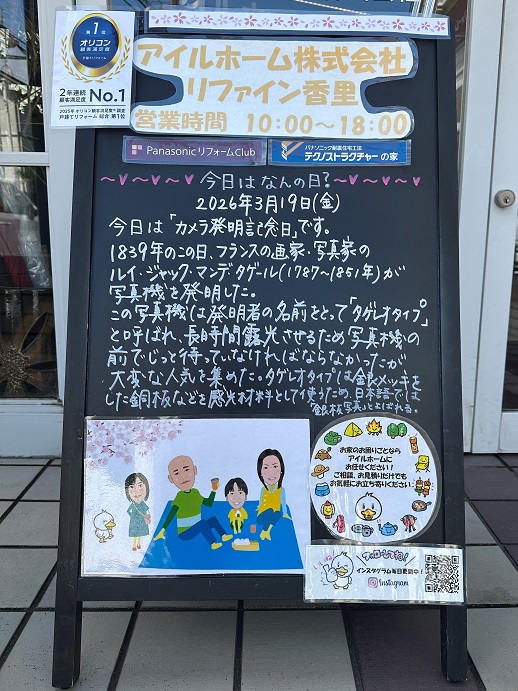 第1位
オリコン
顧客満足度
2年連続
顧客満足度 No.1
2025年 オリコン顧客満足度®調査
戸建てリフォーム 総合 第1位
アイルホーム株式会社
リファイン香里
営業時間 10:00～18:00
Panasonic リフォームClub
パナソニック耐震住宅工法
テクノストラクチャーの家
～♥～♥～今日はなんの日?～♥～♥～
2026年3月19日(金)
今日は「カメラ発明記念日」です。
1839年のこの日、フランスの画家・写真家の
ルイ・ジャック・マンデ・タゲール(1787～1851年)が
写真機を発明した。
この写真機は発明者の名前をとって「タゲレオタイプ」
と呼ばれ、長時間露光させるため写真機の
前でじっと待っていなければならなかったが
大変な人気を集めた。タゲレオタイプは金銀メッキを
した銅板などを感光材料として使うため、日本語では
「銀板写真」とよばれる。
お家のお困りごとなら
アイルホームに
お任せください！
ご相談、お見積りだけでも
お気軽にお立ち寄りください
フォローしてね！
インスタグラム毎日更新中！
Instagram